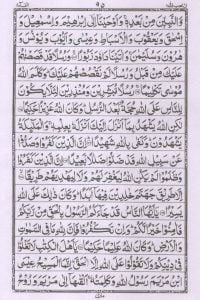 ٩٥
وَالنَّبِيّٖنَ مِنْۢ بَعْدِهٖ وَاَوْحَيْنَاۤ اِلٰۤى اِبْرٰهِيْمَ وَاِسْمٰعِيْلَ وَ
اِسْحٰقَ وَيَعْقُوْبَ وَالْاَسْبَاطِ وَعِيْسٰى وَاَيُّوْبَ وَيُوْنُسَ وَ
هٰرُوْنَ وَسُلَيْمٰنَ وَاٰتَيْنَا دَاوٗدَ زَبُوْرًا وَرُسُلًا قَدْ قَصَصْنٰهُمْ
عَلَيْكَ مِنْ قَبْلُ وَرُسُلًا لَّمْ نَقْصُصْهُمْ عَلَيْكَ وَكَلَّمَ اللّٰهُ
مُوْسٰى تَكْلِيْمًا رُسُلًا مُّبَشِّرِيْنَ وَمُنْذِرِيْنَ لِئَلَّا يَكُوْنَ
لِلنَّاسِ عَلَى اللّٰهِ حُجَّةٌۢ بَعْدَ الرُّسُلِ وَكَانَ اللّٰهُ عَزِيْزًا حَكِيْمًا
لٰكِنِ اللّٰهُ يَشْهَدُ بِمَاۤ اَنْزَلَ اِلَيْكَ اَنْزَلَهٗ بِعِلْمِهٖ وَالْمَلٰٓئِكَةُ
يَشْهَدُوْنَ وَكَفٰى بِاللّٰهِ شَهِيْدًا اِنَّ الَّذِيْنَ كَفَرُوْا وَصَدُّوْا
عَنْ سَبِيْلِ اللّٰهِ قَدْ ضَلُّوْا ضَلٰلًۢا بَعِيْدًا اِنَّ الَّذِيْنَ كَفَرُوْا
وَظَلَمُوْا لَمْ يَكُنِ اللّٰهُ لِيَغْفِرَ لَهُمْ وَلَا لِيَهْدِيَهُمْ طَرِيْقًا
اِلَّا طَرِيْقَ جَهَنَّمَ خٰلِدِيْنَ فِيْهَاۤ اَبَدًا وَكَانَ ذٰلِكَ عَلَى اللّٰهِ
يَسِيْرًا يٰۤاَيُّهَا النَّاسُ قَدْ جَآءَكُمُ الرَّسُوْلُ بِالْحَقِّ مِنْ رَّبِّكُمْ
فَاٰمِنُوْا خَيْرًا لَّكُمْ وَاِنْ تَكْفُرُوْا فَاِنَّ لِلّٰهِ مَا فِى السَّمٰوٰتِ
وَالْاَرْضِ وَكَانَ اللّٰهُ عَلِيْمًا حَكِيْمًا يٰۤاَهْلَ الْكِتٰبِ لَا تَغْلُوْا
فِيْ دِيْنِكُمْ وَلَا تَقُوْلُوْا عَلَى اللّٰهِ اِلَّا الْحَقَّ اِنَّمَا الْمَسِيْحُ عِيْسَى
ابْنُ مَرْيَمَ رَسُوْلُ اللّٰهِ وَكَلِمَتُهٗ اَلْقٰىهَاۤ اِلٰى مَرْيَمَ وَرُوْحٌ